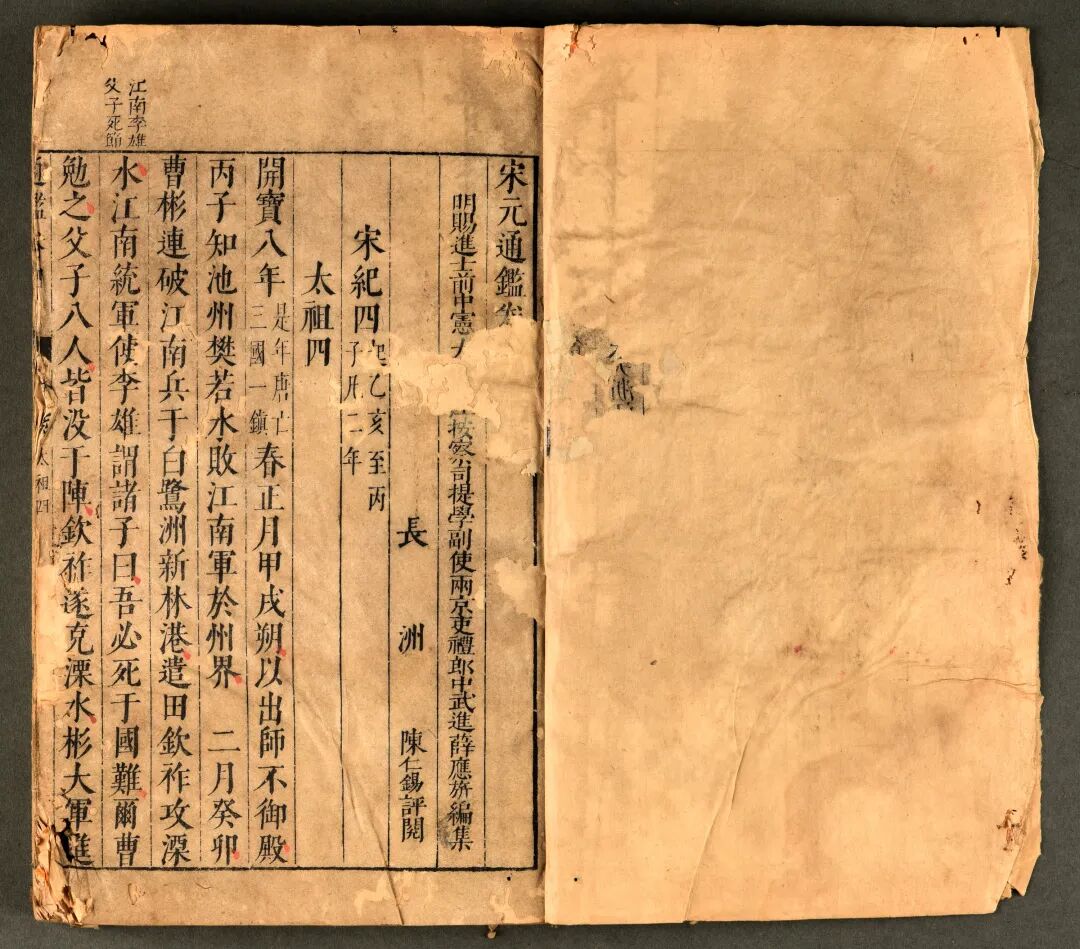 江南李雄
父子死節
宋元通鑑卷
明賜進士前中憲大 按察司提學副使兩京吏禮郎中武進薛應旂編集
長洲 陳仁錫評閱
宋紀四 起乙亥至丙子凡二年
太祖四
開寶八年 是年唐亡三國一鎮 春正月甲戌朔以出師不御殿
丙子知池州樊若水敗江南軍於州界 二月癸卯
曹彬連破江南兵于白鷺洲新林港遣田欽祚攻溧
水江南統軍使李雄謂諸子曰吾必死于國難爾曹
勉之父子八人皆没于陣欽祚遂克溧水彬大軍進
太祖四